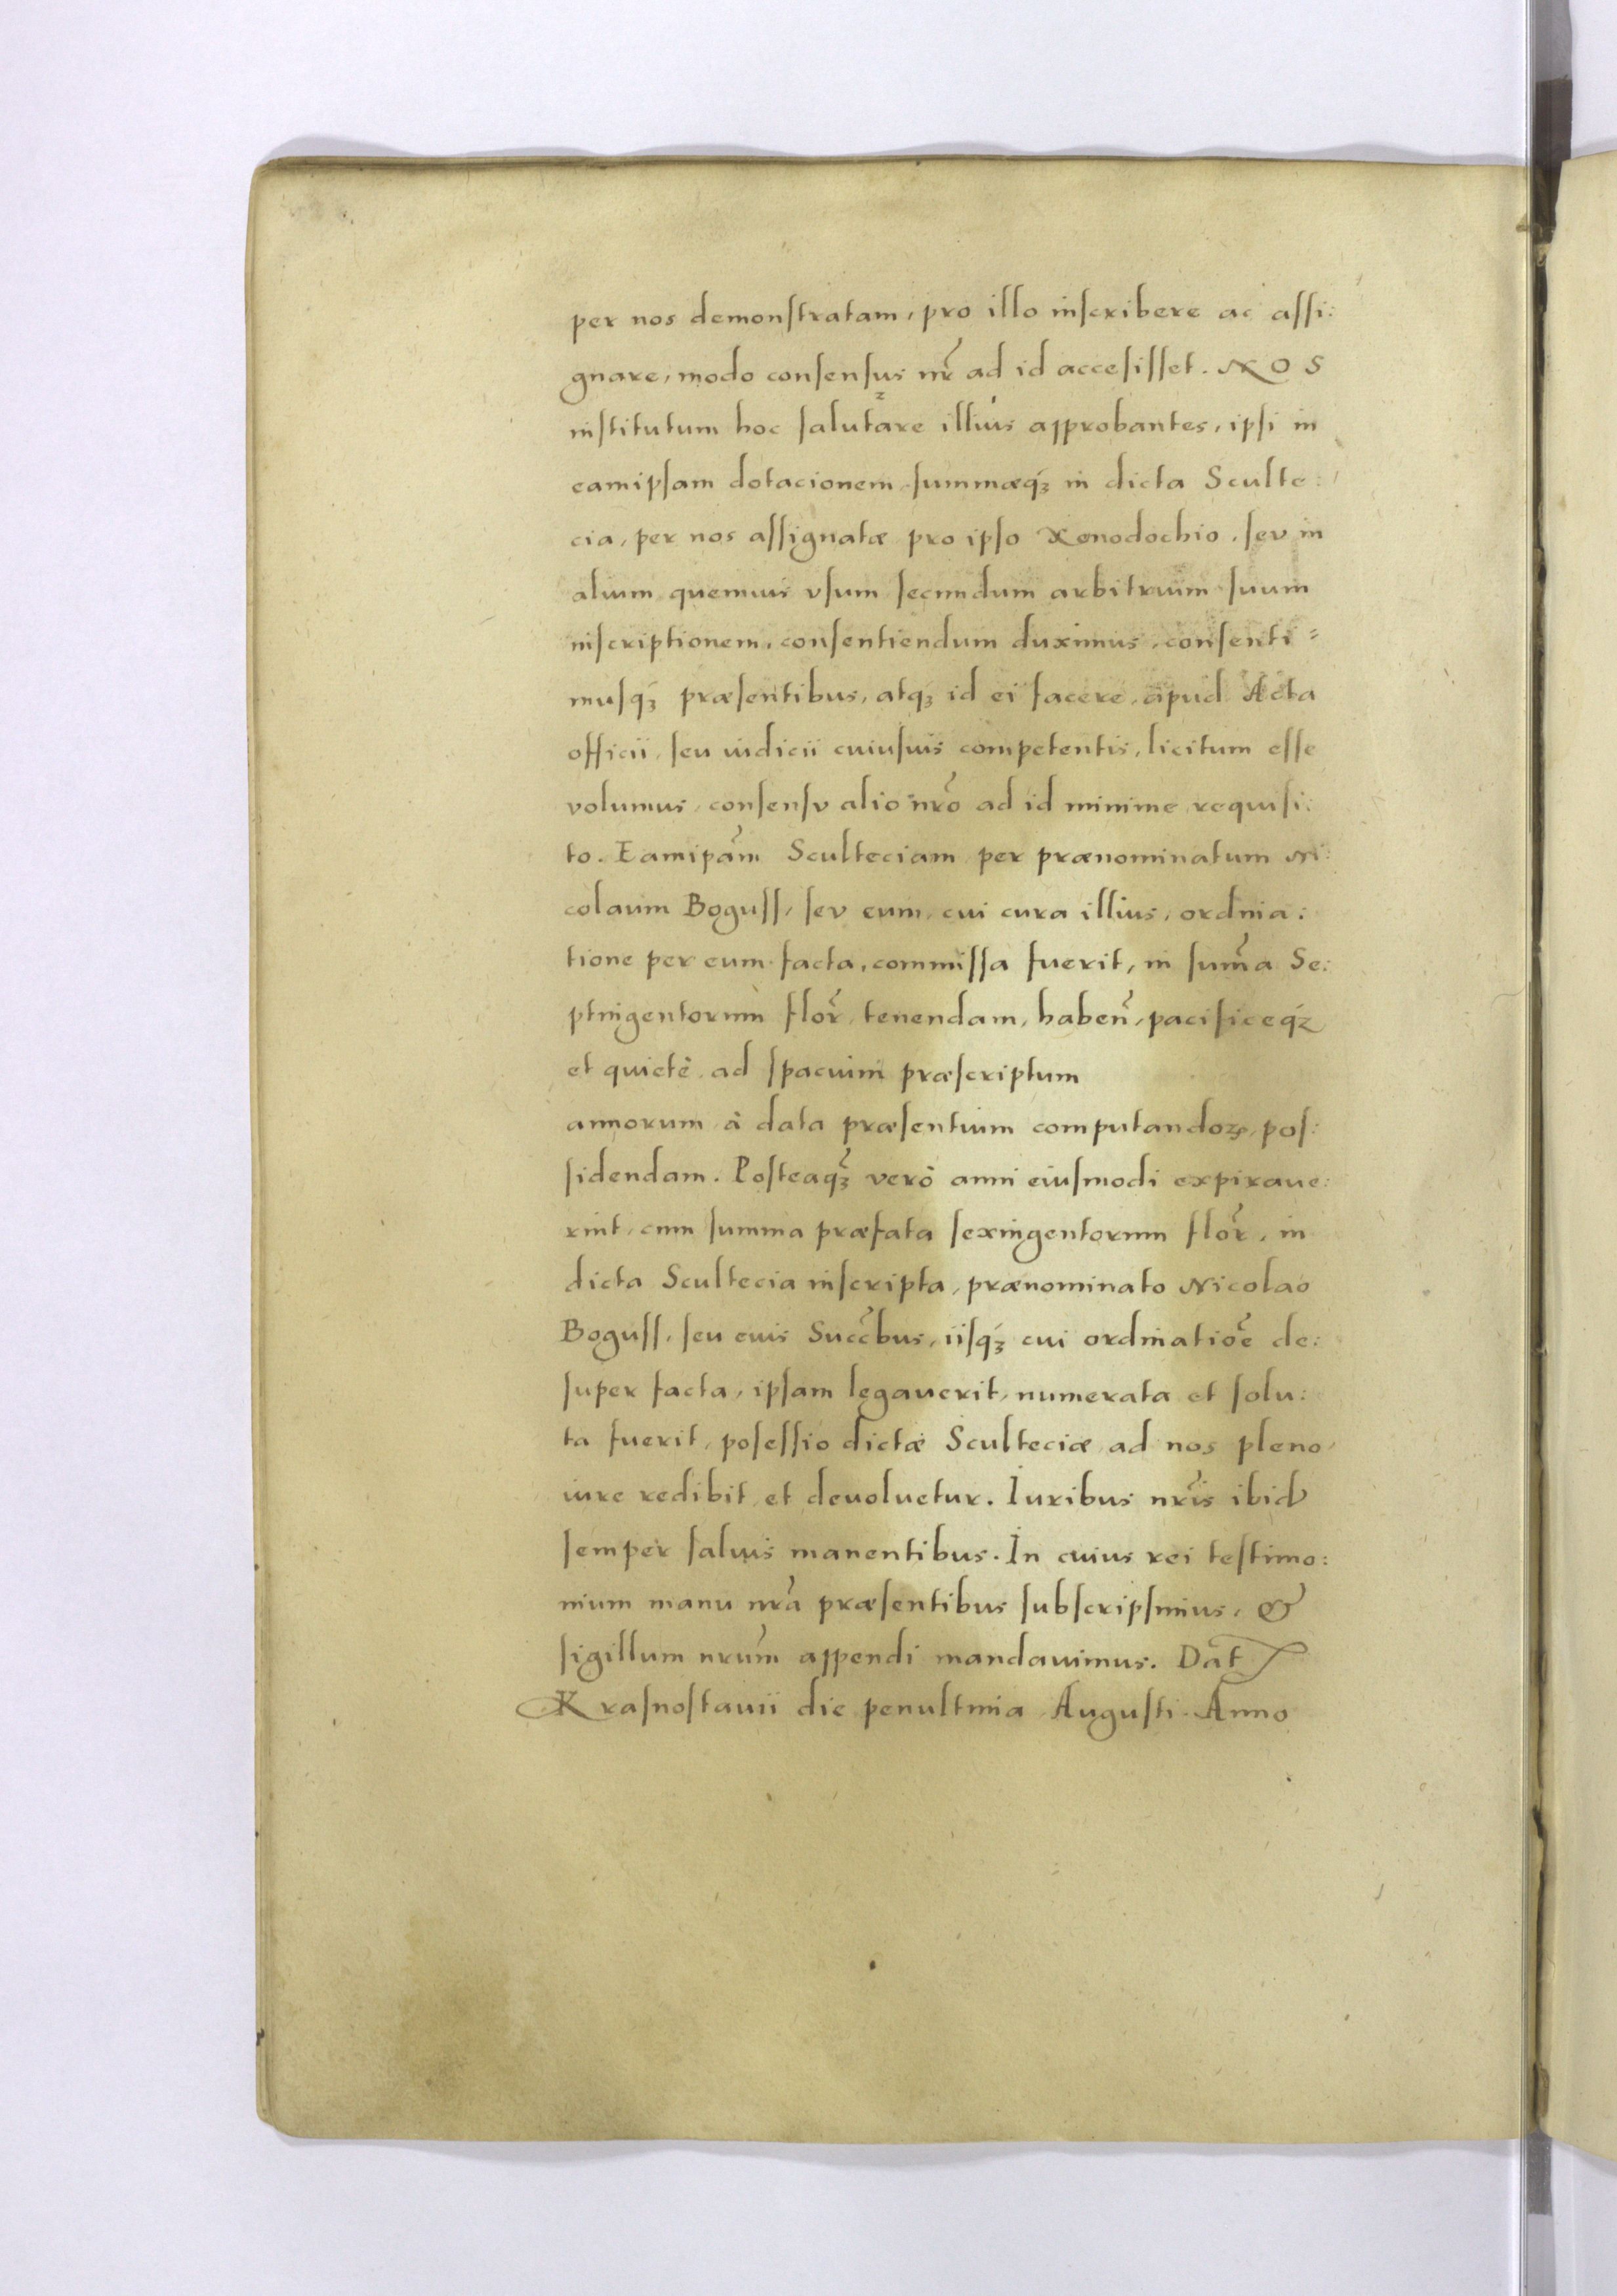 per nos demonſtratam, pro illo inſcribere ac aſſi:
gnare, modo conſenſus nr̃ ad id acceſiſſet. NOS
inſtitutum hoc ſalutare illius approbantes, ipſi in
eamipſam dotacionem ſummæq́ꝫ in dicta Sculte:
cia, per nos aſſignatæ pro ipſo Xenodochio, ſev in
alium quemuis vſum ſecundum arbitrium ſuum
inſcriptionem, conſentiendum duximus, conſenti=
muſq́ꝫ præſentibus, atqꝫ id ei facere, apud Acta
officii, ſeu iudicii cuiuſuis competentis, licitum eſſe
volumus, conſenſv alio nrõ ad id minime requiſi:
to. Eamipãm Sculteciam per prænominatum Ni:
colaum Boguſſ, ſev eum, cui cura illius, ordina:
tione per eum facta, commiſſa fuerit, in ſum̃a Se:
ptingentorum flor̃, tenendam, habeñ, pacificeq́ꝫ
et quietè ad ſpacium præſcriptum
annorum à data præſentium computandoꝝ, poſ:
ſidendam. Poſteaq̃ꝫ verò anni eiuſmodi expiraue:
rint, cum ſumma præfata ſexingentorum flor̃, in
dicta Scultecia inſcripta, prænominato Nicolao
Boguſſ, ſeu euis Succ̃bus, iiſq́ꝫ cui ordinatiõe de:
ſuper facta, ipſam legauerit, numerata et ſolu:
ta fuerit, poſeſſio dictæ Sculteciæ ad nos pleno
iure redibit et deuoluetur. Iuribus nrĩs ibid
ſemper ſaluis manentibus. In cuius rei teſtimo:
nium manu nrã præſentibus ſubſcripſimus, &
ſigillum nrũm appendi mandauimus. Dat̃
Kraſnoſtauii die penultima Auguſti Anno